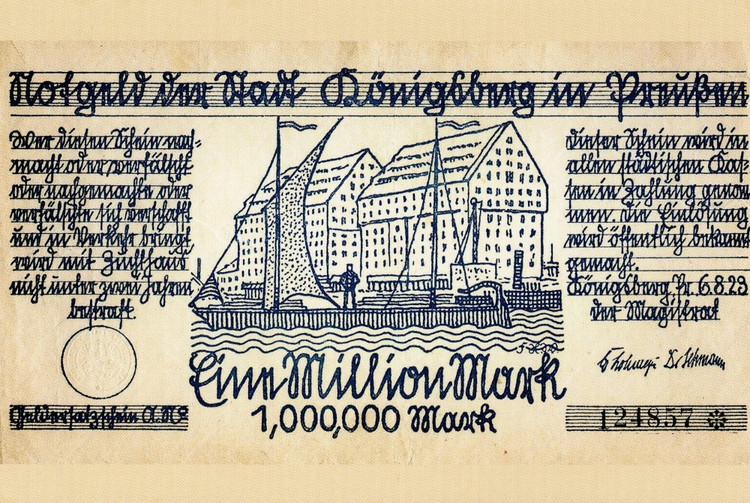 Notgeld der Stadt Königsberg in Preußen
Wer diesen Schein nach-
macht oder verfälscht
oder nachgemachte oder
verfälschte sich verschafft
und in Verkehr bringt,
wird mit Zuchthaus
nicht unter zwei Jahren
bestraft
Dieser Schein wird in
allen städtischen Kas-
sen in Zahlung genom
men. Die Einlösung
wird öffentlich bekannt
gemacht.
Königsberg, Pr. 6.8.23
der Magistrat
Eine Million Mark
1,000,000 Mark
Geldersatzschein A. No
124857